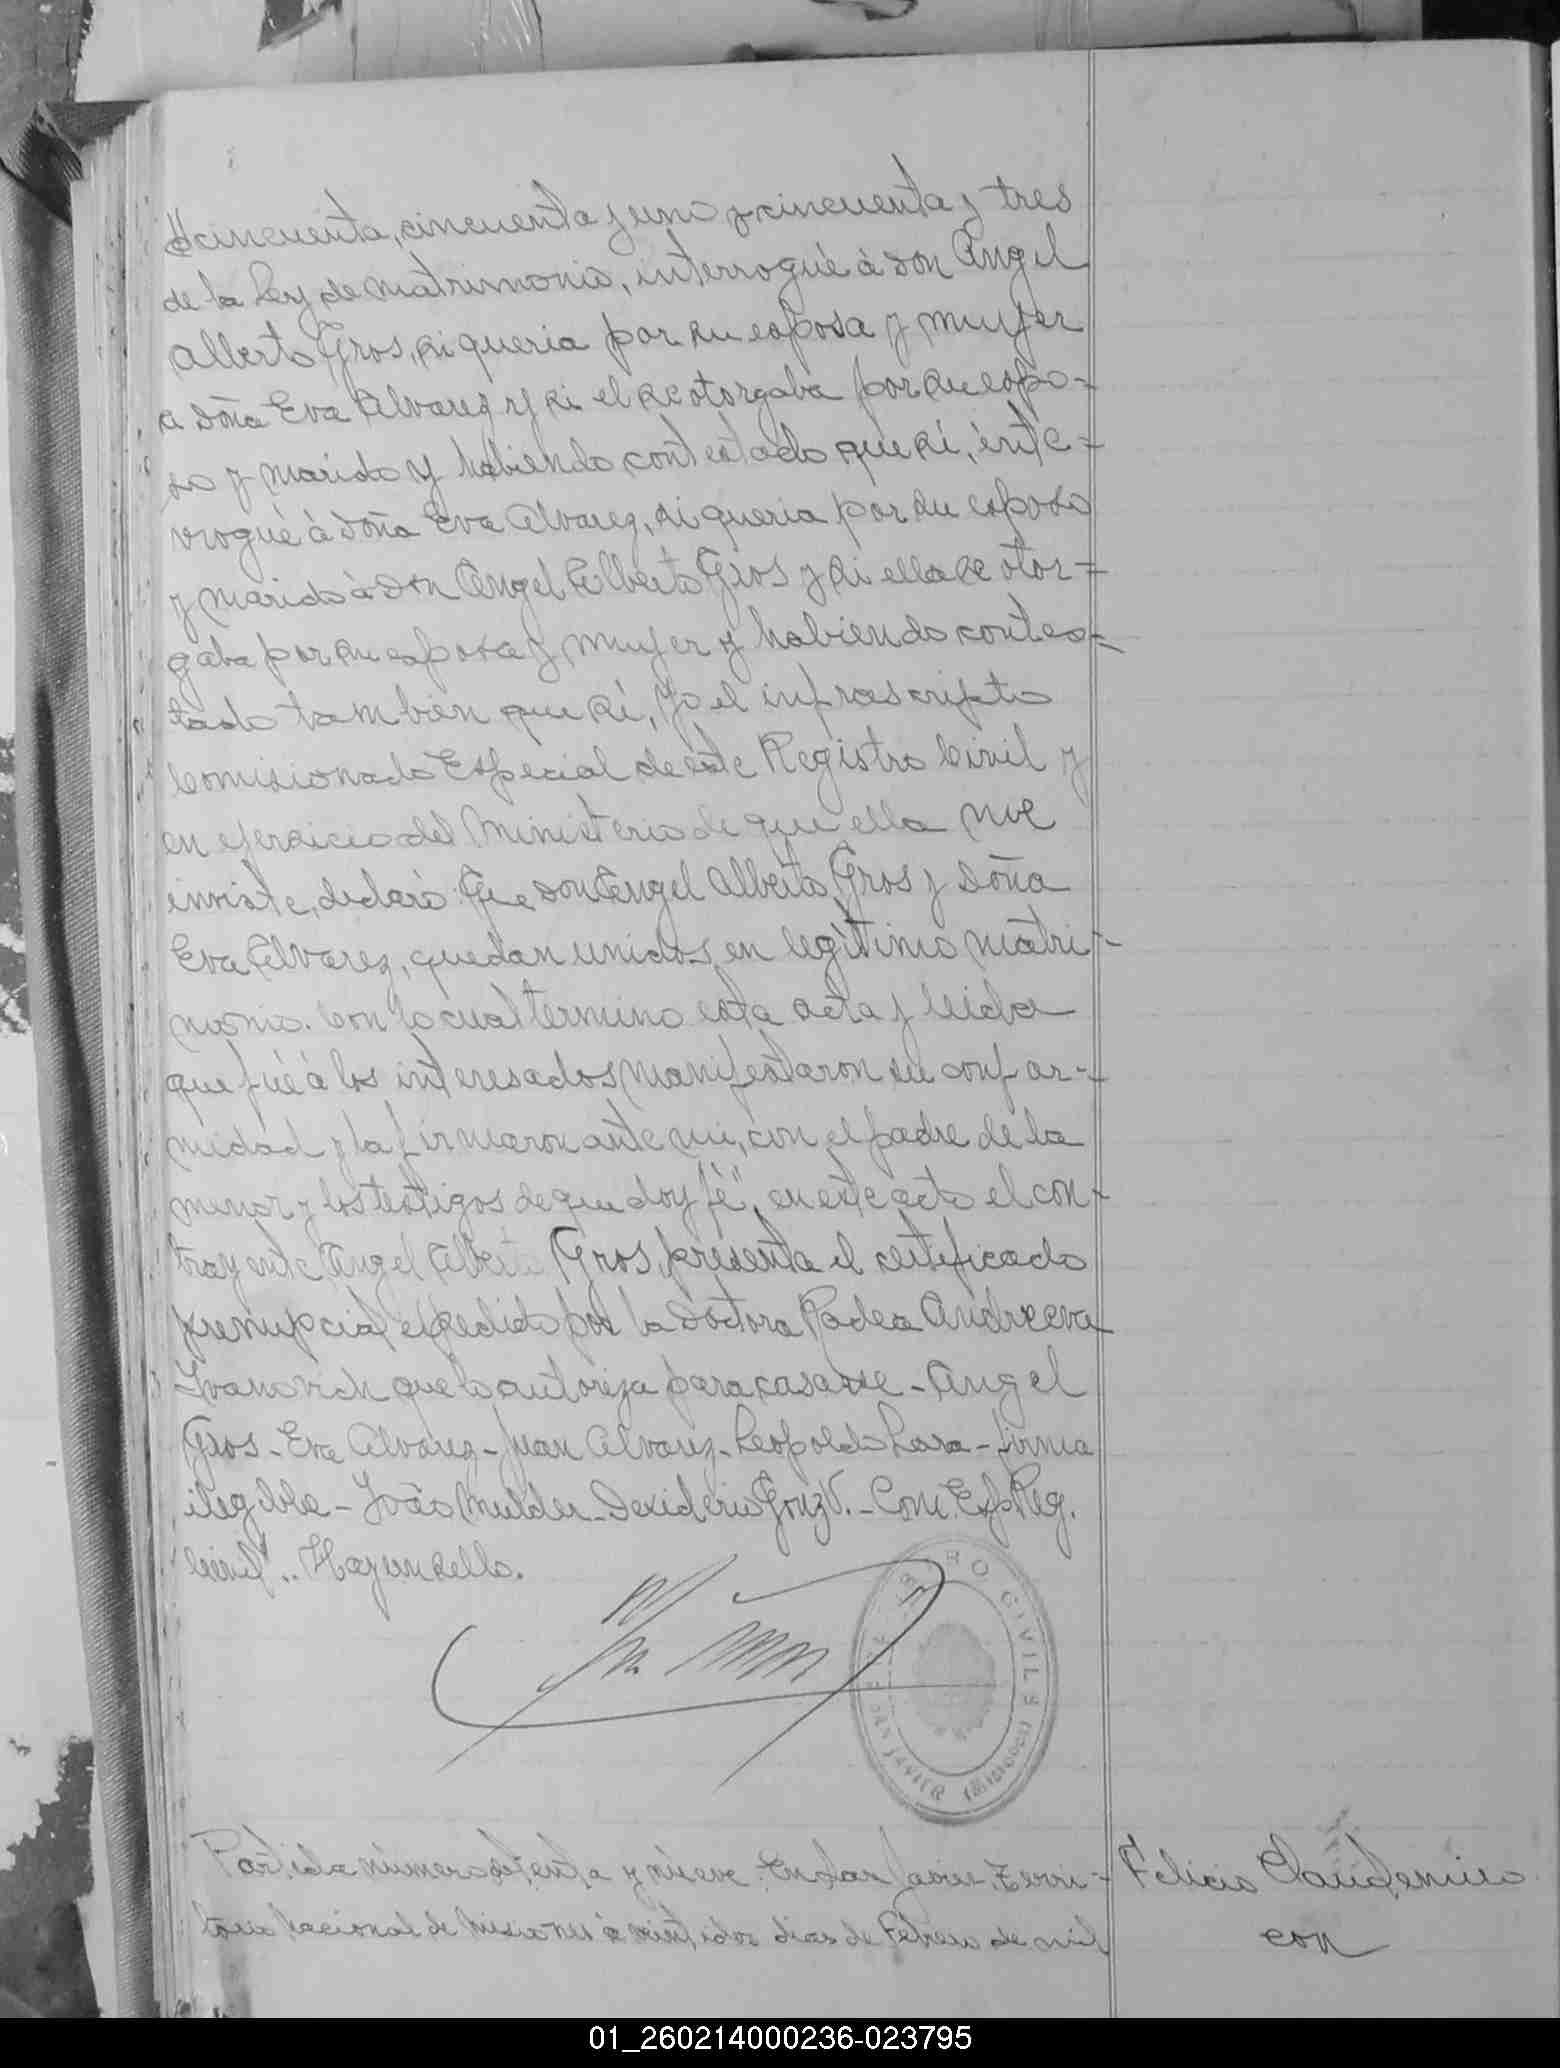 cincuenta, cincuenta y uno y cincuenta y tres
de la Ley de matrimonio, interrogué á don Angel
Alberto Gros, si queria por su esposa y mujer
a doña Eva Alvarez y si el se otorgaba por su espo=
so y marido y habiendo contestado que si, inte=
rrogué á doña Eva Alvarez, si queria por su esposo
y marido á don Angel Alberto Gros y si ella se otor=
gaba por su esposa y mujer y habiendo contes=
tado tambien que si, Yo el infrascripto
Comisionado Especial de este Registro Civil y
en ejercicio del Ministerio de que ella me
inviste, declaro: Que don Angel Alberto Gros y doña
Eva Alvarez, quedan unidos en legitimo matri=
monio. Con lo cual termino esta acta y leida
que fué á los interesados manifestaron su confor=
midad y la firmaron ante mi, con el padre de la
menor y los testigos de que doy fé", en este acto el con=
trayente Angel Alberto Gros, presenta el certificado
prenupcial expedido por la doctora Radea Andreeva
Ivanovich que lo autoriza para casarse - Angel
Gros - Eva Alvarez - Juan Alvarez - Leopoldo Lara - firma
ilegible - João Mulder - Desiderio Gonz V. - Com. Esp. Reg.
Civil".. Hay un sello.
REGISTRO CIVIL
SAN JAVIER (MISIONES)
Partida número setenta y nueve. En San Javier, Terri=
torio Nacional de Misiones á veintidos dias de Febrero de mil
Felicio Claudemiro
con
01_260214000236-023795